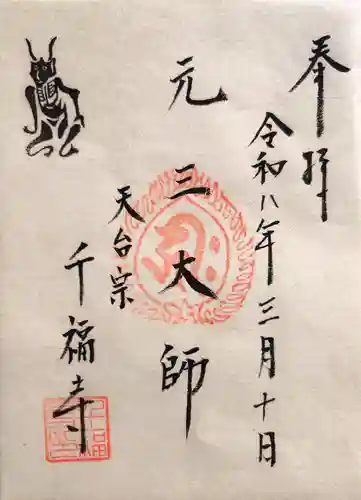 奉拝
令和八年三月十日
元三大師
天台宗
千福寺